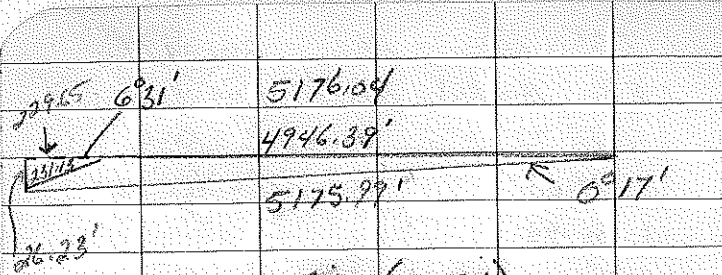 229.65 6°31' 5176.04'
4946.39'
231.13
5175.99' 0°17'
26.23'